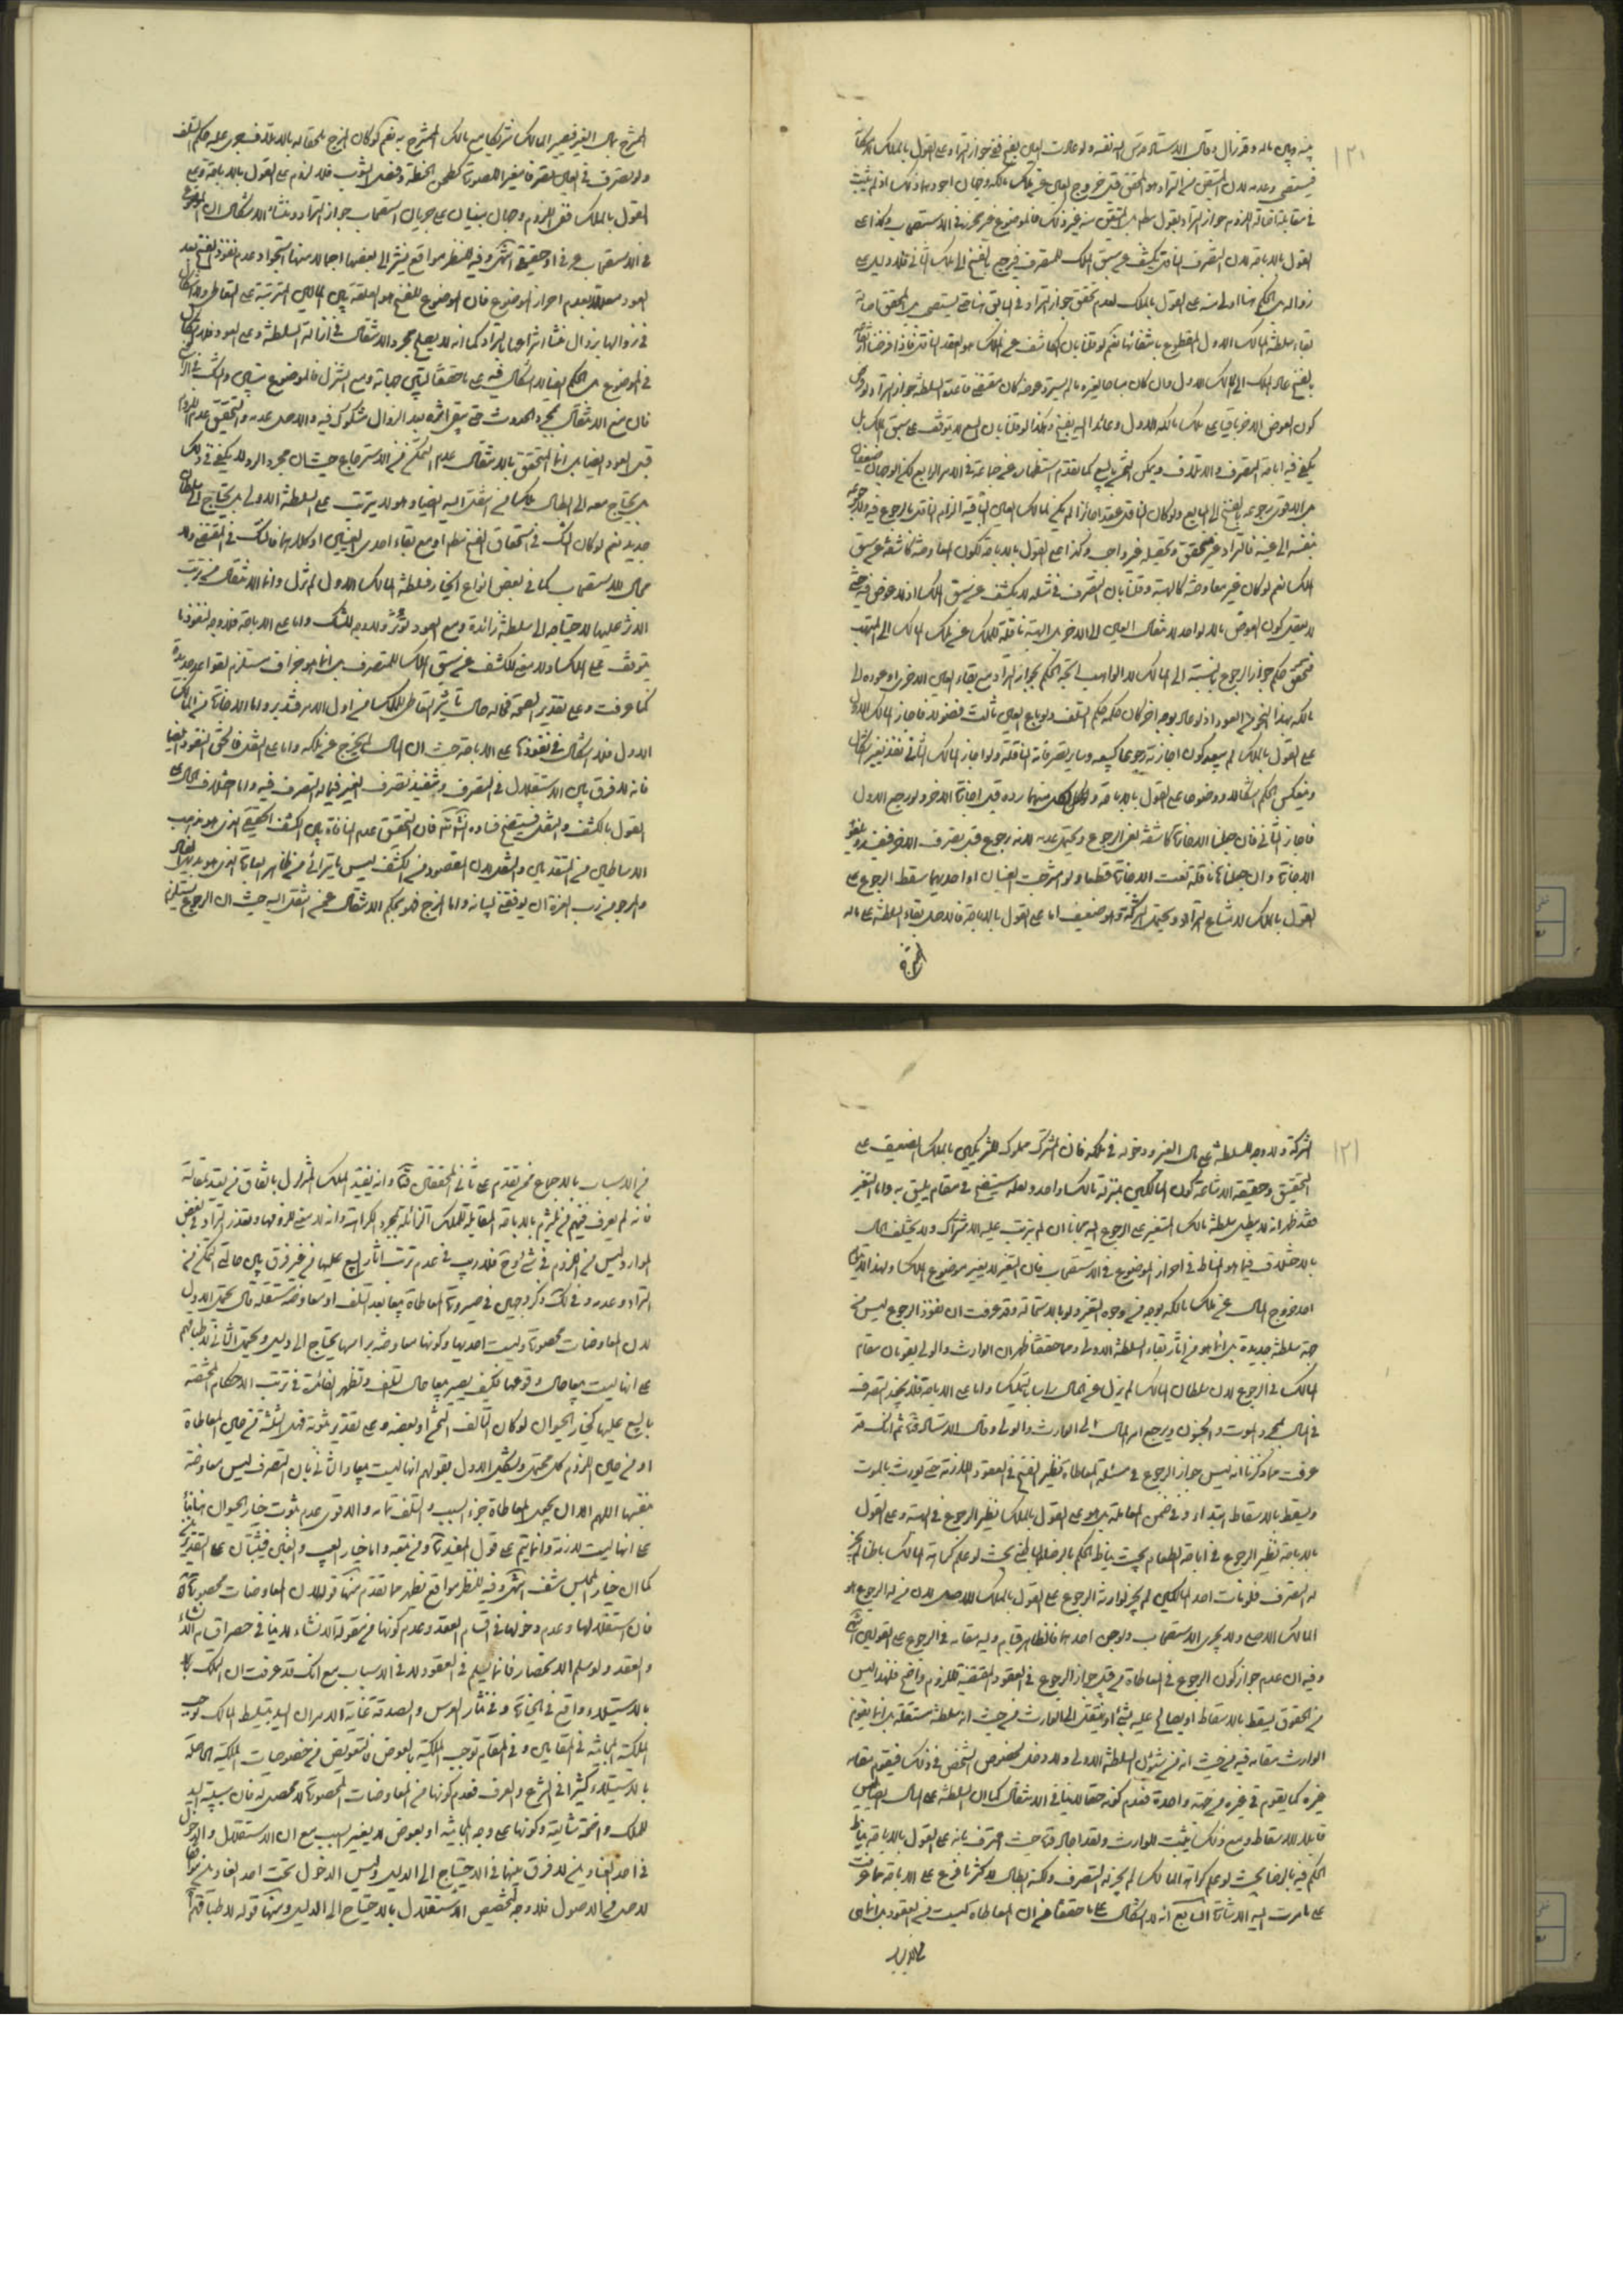 ١٢٠
بينه وبين ماله وقد زال وقال الاستاد قدس الله نفسه ولو عادت العين بفسخ ففي جواز التراد على القول بالملك لامكانه
فيستصحب وعدمه لان المتيقن من التراد هو المحقق قبل خروج العين عن ملك مالكه وجهان اجودهما ذلك اذ لم يثبت
في مقابلة اصالة اللزوم جواز التراد بقول مطلق بل المتيقن منه غير ذلك فالموضوع غير محرز في الاستصحاب وكذا على
القول بالاباحة لان التصرف الناقل يكشف عن سبق الملك للمتصرف فيرجع بالفسخ الى ملك الثاني فلا دليل على
زواله بل الحكم هنا اولى منه على القول بالملك لعدم تحقق جواز التراد في السابق هنا حتى يستصحب بل المحقق اصالة
بقاء سلطنة المالك الاول المقطوع بانتفائها نعم لو قلنا بان الكاشف عن الملك هو العقد الناقل فاذا فرضنا ارتفاعه
بالفسخ عاد الملك الى المالك الاول وان كان مباحا لغيره ما لم يسترد عوضه كان مقتضى قاعدة السلطنة جواز التراد لو فرض
كون العوض الاخر باقيا على ملك مالكه الاول وعائدا اليه بفسخ وكذا لو قلنا بان البيع لا يتوقف على سبق الملك بل
يكفي فيه اباحة التصرف والاتلاف ويملك الثمن بالبيع كما تقدم استظهاره عن جماعة في الامر الرابع لكن الوجهان ضعيفان
بل الاقوى رجوعه بالفسخ الى البايع ولو كان الناقل عقدا جائزا لم يكن لمالك العين الباقية الزام الناقل بالرجوع فيه ولا رجوعه
بنفسه الى عينه فالتراد غير محقق وتحصيله غير واجب وكذا على القول بالاباحة لكون المعاوضة كاشفة عن سبق
الملك نعم لو كان غير معاوضة كالهبة وقلنا بان التصرف في مثله لا يكشف عن سبق الملك اذ لا عوض فيه حتى
لا يعقل كون العوض مالا لواحد لانتقال العين الى الاخر بل الهبة ناقلة للملك عن ملك المالك الى المتهب
فيتحقق حكم جواز الرجوع بالنسبة الى المالك لا الواهب اتجه الحكم بجواز التراد مع بقاء العين الاخرى او عوده الى
مالكه بهذا النحو من العود اذ لو عاد بوجه اخر كان حكمه حكم التلف ولو باع العين ثالث فضولا فاجاز المالك الاول
على القول بالملك لم يبعد كون اجازته رجوعا كبيعه وساير تصرفاته الناقلة ولو اجاز المالك الثاني نفذ بغير اشكال
وينعكس الحكم اشكالا ووضوحا على القول بالاباحة ولكل منهما رده قبل اجازة الاخر ولو رجع الاول
فاجاز الثاني فان جعلنا الاجازة كاشفة لغى الرجوع ويحتمل عدمه لانه رجوع قبل تصرف الاخر فينفذ ويلغو
الاجازة وان جعلناها ناقلة لغت الاجازة قطعا ولو امتزجت العينان او احديهما سقط الرجوع على
القول بالملك لامتناع التراد ويحتمل الشركة وهو ضعيف اما على القول بالاباحة فالاصل بقاء السلطنة على ماله
الممتزج
الممتزج بمال الغير فيصير المالك شريكا مع مالك الممتزج به نعم لو كان المزج ملحقا له بالاتلاف جرى عليه حكم التلف
ولو تصرف في العين تصرفا مغيرا للصورة كطحن الحنطة وفصل الثوب فلا لزوم على القول بالاباحة وعلى
القول بالملك ففي اللزوم وجهان مبنيان على جريان استصحاب جواز التراد ومنشأ الاشكال ان الموضوع
في الاستصحاب عرفي او حقيقي انتهى وفيه للنظر مواقع نشير الى بعضها اجمالا منها استجواد عدم نفوذ الفسخ بعد
العود معللا بعدم احراز الموضوع فان الموضوع للفسخ هو العلقة بين المالين المترتبة على التعاطي ولا اشكال
في زوالها بزوال منشا انتزاعها بالتراد كما انه لا يعلم بمجرد الانتقال في ازالة السلطنة وعلى العود فلا اشكال
في الموضوع بل الحكم ايضا لا اشكال فيه على ما حققنا ليتبين جهاته ومع التنزل فالموضوع متبين والشك في الرافع
فان منع الانتقال بمجرد الحدوث حتى يبقى اثره بعد الزوال مشكوك فيه والاصل عدمه والتحقيق عدم اللزوم
قبل العود ايضا بل انما المتحقق بالانتقال عدم التمكن من الاسترجاع حيث ان مجرد الرد لا يكفي في ذلك
بل يحتاج معه الى ابطال ملك من انتقل اليه ايضا وهو لا يترتب على السلطنة الاولى بل يحتاج الى سلطان
جديد نعم لو كان الشك في استحقاق الفسخ مطلقا او مع بقاء احدى العينين او كلاهما فالشك في المقتضي ولا
مجال للاستصحاب كما في بعض انواع الخيار فسلطنة المالك الاول لم تزل وانما الانتقال منع ترتب
الاثر عليها لاحتياجه الى سلطنة زائدة ومع العود تؤثر ولا وجه للشك واما على الاباحة فلا وجه لنفوذها
يتوقف على الملك ولا معنى للكشف عن سبق الملك للمتصرف بل انما هو جزاف مستلزم لقواعد جديدة
كما عرفت وعلى تقدير الصحة فحاله حال تاثير التعاطي للملك من اول الامر فتدبر واما الاجازة من المالك
الاول فلا اشكال في نفوذها على الاباحة حيث ان المال لم يخرج عن ملكه واما على النقل فالحق النفوذ ايضا
فانه لا فرق بين الاستقلال في التصرف وتنفيذ تصرف الغير فيما له التصرف فيه واما اختلاف الحال على
القول بالكشف والنقل فيتضح فساده انشاءالله فان التحقيق عدم المنافاة بين الكشف الحقيقي الذي هو مذهب
الاساطين من المتقدمين والنقل لان المقصود من الكشف ليس ما يتراءى من ظاهر العبارة الذي هو بديهي الفساد
والمرجو من رب العزة ان يوفقني لبيانه واما المزج فهو بحكم الانتقال عمن انتقل اليه حيث ان الرجوع يستلزم
١٢١
الشركة ولا وجه للسلطنة على مال الغير ودخوله في ملكه فان المشترك مملوك للشريكين بالملك الضعيف على
التحقيق وحقيقة الاشاعة كون المالكين بمنزلة مالك واحد ولعله سيتضح في مقام يليق به واما التغير
فقد ظهر انه لا يبطل سلطنة مالك المتغير على الرجوع اليه مجانا ان لم يترتب عليه الاشتراك ولا يختلف الحال
بالاختلاف فيما هو المناط في احراز الموضوع في الاستصحاب فان التغير لا يغير موضوع الملك ولهذا لا يتوهم
احد خروج المال عن ملك مالكه بوجه من وجوه التغير ولو بالاستحالة وقد عرفت ان نفوذ الرجوع ليس من
جهة سلطنة جديدة بل انما هو من اثار بقاء السلطنة الاولى ومما حققنا ظهر ان الوارث والولي يقومان مقام
المالك في الرجوع لان سلطان المالك لم يزل عن المال راسا بالتمليك واما على الاباحة فلا يجوز التصرف
في المال بمجرد الموت والجنون ويرجع امر المال الى الوارث والولي وقال الاستاد قدس ثم انك قد
عرفت مما ذكرنا انه ليس جواز الرجوع في مسئلة المعاطاة نظير الفسخ في العقود اللازمة حتى يورث بالموت
ويسقط بالاسقاط ابتداء وفي ضمن المعاملة بل هو على القول بالملك نظير الرجوع في الهبة وعلى القول
بالاباحة نظير الرجوع في اباحة الطعام بحيث يناط الحكم بالرضا الباطني بحيث لو علم كراهة المالك باطنا لم يجز
له التصرف فلو مات احد المالكين لم يجز لوارثه الرجوع على القول بالملك للاصل لان من له الرجوع هو
المالك الاصلي ولا يجري الاستصحاب ولو جن احدهما فالظاهر قيام وليه مقامه في الرجوع على القولين انتهى
وفيه ان عدم جواز كون الرجوع في المعاطاة من قبيل جواز الرجوع في العقود المقتضية للزوم واضح فلهذا ليس
من الحقوق يسقط بالاسقاط او يصالح عليه بشئ او ينتقل الى الوارث من حيث انه سلطنة مستقلة بل انما يقوم
الوارث مقامه فيه من حيث انه من شئون السلطنة الاولى ولا دخل لخصوص الشخص في ذلك فيقوم مقامه
غيره كما يقوم في غيره من جهة واحدة فعدم كونه حقا لا ينافي الانتقال كما ان السلطنة على المال ايضا ليس
قابلا للاسقاط ومع ذلك يثبت للوارث ولقد اجاد قدس حيث اعترف بانه على القول بالاباحة يناط
الحكم فيه بالرضا بحيث لو علم كراهة المالك لم يجز له التصرف ولكنه ابطال لاكثر ما فرع على الاباحة مما عرفت
على ما مرت اليه الاشارة السابع انه لا اشكال على ما حققناه من ان المعاطاة ليست من العقود بل انما هي
من الاسباب
من الاسباب بالاجماع ممن تقدم على ثاني المحققين قدس وانه يفيد الملك المتزلزل باتفاق من يعتد بمقالته
فانه لم يعرف فيهم من يلتزم بالاباحة المقابلة للملك الزائلة بمجرد الكراهة وانه لا معنى للزومها وتعذر التراد في بعض
الموارد ليس من اللزوم في شئ لوجوه فلا ريب في عدم ترتب اثار البيع عليها من غير فرق بين حالتي التمكن من
التراد وعدمه وفي لك ذكر وجهين في صيرورة المعاطاة بيعا بعد التلف او معاوضة مستقلة قال يحتمل الاول
لان المعاوضات محصورة وليست احديها وكونها معاوضة براسها يحتاج الى دليل ويحتمل الثاني لاطباقهم
على انها ليست بيعا حال وقوعها فكيف يصير بيعا حال التلف وتظهر الفائدة في ترتب الاحكام المختصة
بالبيع عليها كخيار الحيوان لو كان التالف الثمن او بعضه وعلى تقدير ثبوته فهل الثلثة من حين المعاطاة
او من حين اللزوم كل محتمل ويشكل الاول بقولهم انها ليست بيعا والثاني بان التصرف ليس معاوضة
بنفسها اللهم الا ان يجعل المعاطاة جزء السبب والتلف تمامه والاقوى عدم ثبوت خيار الحيوان هنا بناء
على انها ليست لازمة وانما يتم على قول المفيد ره ومن تبعه واما خيار العيب والغبن فيثبتان على التقديرين
كما ان خيار المجلس منتف انتهى وفيه للنظر مواقع تظهر مما تقدم منها قوله لان المعاوضات محصورة
فان استقلالها وعدم دخولها في اقسام العقد وعدم كونها من مقولة الانشاء لا ينافي حصر اقسام الانشاء
والعقد ولو سلم الانحصار فانما يسلم في العقود لا في الاسباب مع انك قد عرفت ان التملك
بالاستيلاء واقع في الحيازة وفي نثار العرس والصدقة غاية الامر ان اليد بتسليط المالك توجب
الملكية المجانية في المقابلين وفي المقام توجب الملكية بالعوض فالتعويض من خصوصيات الملكية الحاصلة
بالاستيلاء كثيرا في الشرع والعرف فعدم كونها من المعاوضات المحصورة لا محصل له فان سببية اليد
للملك واضحة ثابتة وكونها على وجه المجانية او بعوض لا يغير السبب مع ان الاستقلال والدخول
في احد العناوين لا فرق بينها في الاحتياج الى الدليل وليس الدخول تحت احد العناوين موافقا
لاصل من الاصول فلا وجه لتخصيص الاستقلال بالاحتياج الى الدليل ومنها قوله لاطباقهم